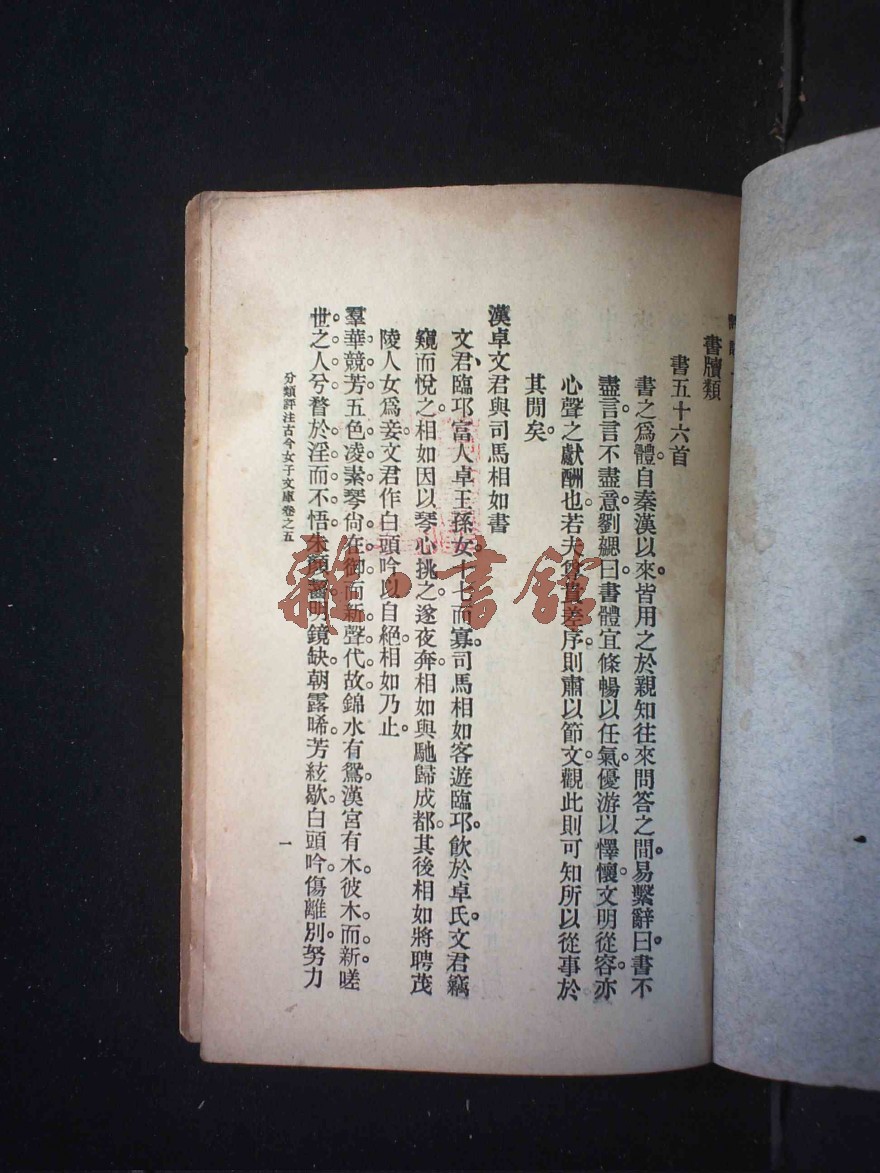 書牘類
書五十六首
書之爲體。自秦漢以來。皆用之於親知往來問答之間。易繫辭曰。書不
盡言。言不盡意。劉勰曰。書體宜條暢以任氣。優游以懌懷。文明從容。亦
心聲之獻酬也。若夫尊貴差序。則肅以節文。觀此則可知所以從事於
其閒矣。
漢卓文君與司馬相如書
文君、臨邛富人卓王孫女。十七而寡。司馬相如客遊臨邛。飲於卓氏。文君竊
窺而悅之。相如因以琴心挑之。遂夜奔相如。與馳歸成都。其後相如將聘茂
陵人女爲妾。文君作白頭吟以自絕。相如乃止。
羣華競芳。五色凌素。琴尙在御。而新聲代故。錦水有鴛。漢宮有木。彼木而新。嗟
世之人兮。瞀於淫而不悟。朱顏齧。明鏡缺。朝露晞。芳絃歇。白頭吟。傷離別。努力
分類評注古今女子文庫 卷之五
一
雜书館